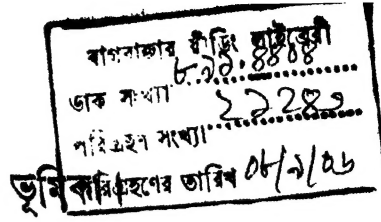 বাগবাজার রীডিং লাইব্রেরী
ডাক সংখ্যা ৮৯১.৪৪০৪
পরিগ্রহণ সংখ্যা ২২২৪৩
পরিগ্রহণের তারিখ ০৮/৯/০৬
ভূমিকা